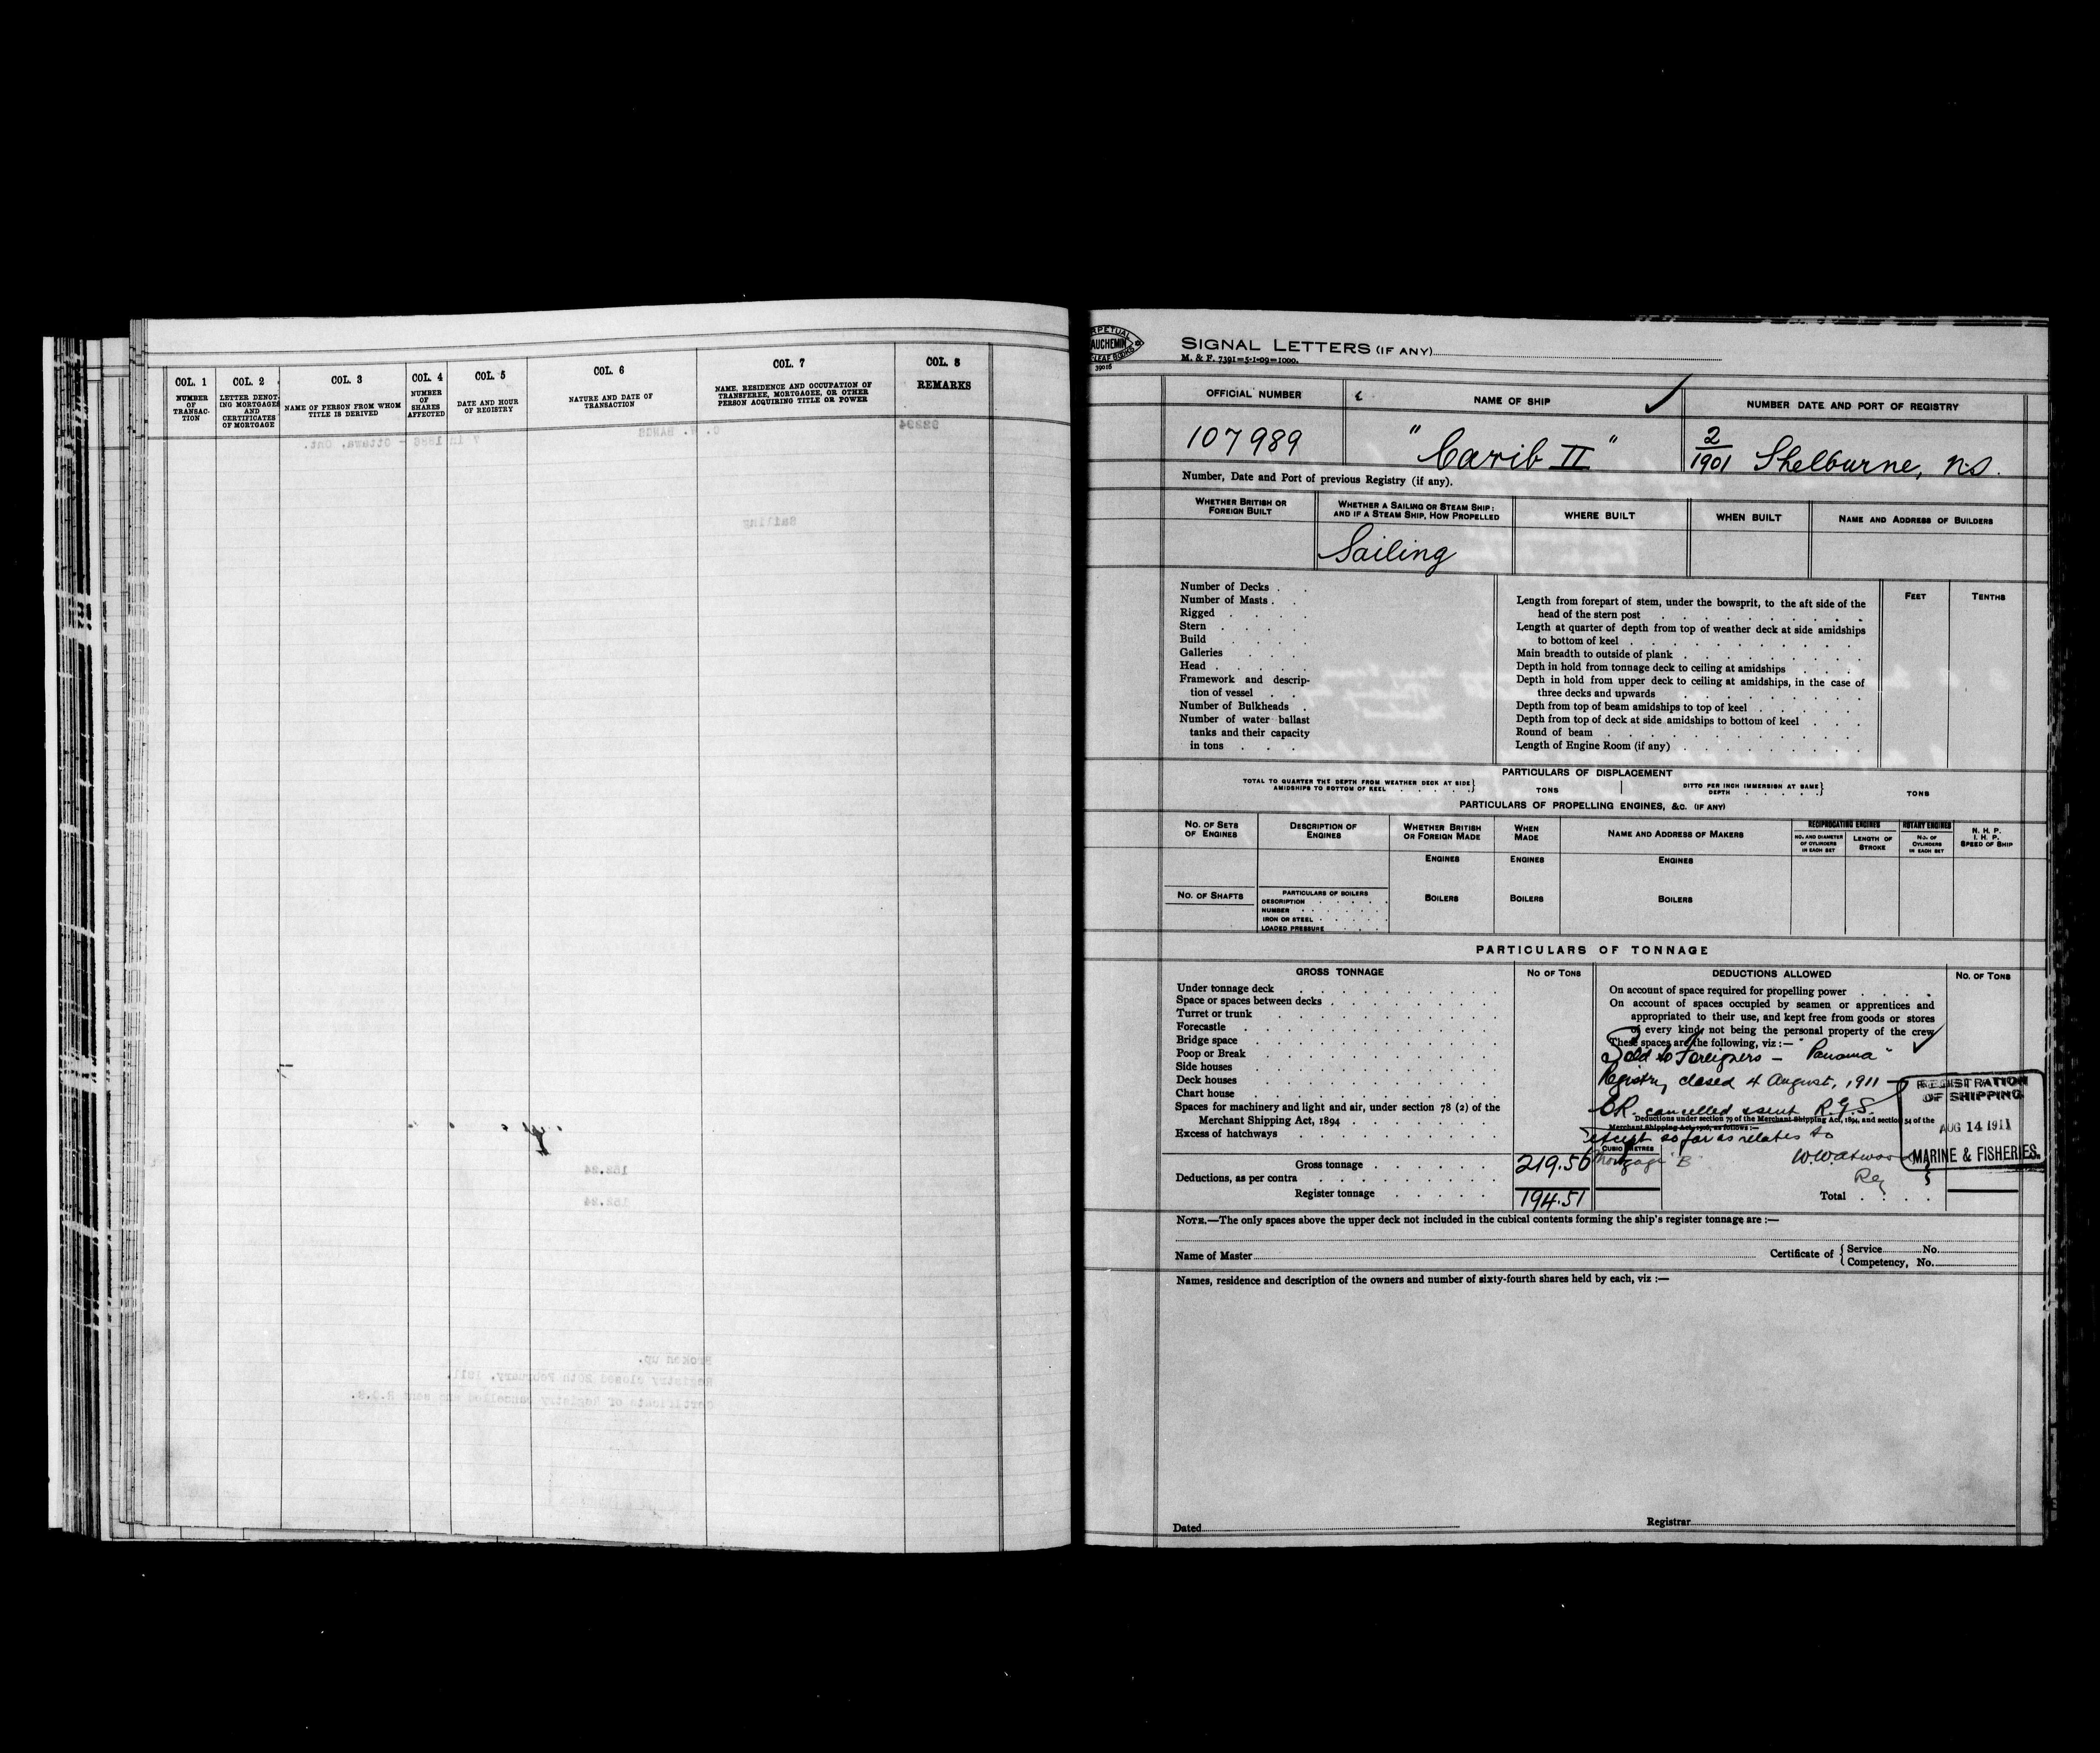 COL. 1
NUMBER
OF
TRANSAC-
TION
COL. 2
LETTER DENOT-
ING MORTGAGES
AND
CERTIFICATES
OF MORTGAGE
COL. 3
NAME OF PERSON FROM WHOM
TITLE IS DERIVED
COL. 4
NUMBER
OF
SHARES
AFFECTED
COL. 5
DATE AND HOUR
OF REGISTRY
COL. 6
NATURE AND DATE OF
TRANSACTION
COL. 7
NAME, RESIDENCE AND OCCUPATION OF
TRANSFEREE, MORTGAGEE, OR OTHER
PERSON ACQUIRING TITLE OR POWER
COL. 8
REMARKS
SIGNAL LETTERS (IF ANY)
M. & F. 7391=5-1-09=1000.
39016
OFFICIAL NUMBER
NAME OF SHIP
NUMBER DATE AND PORT OF REGISTRY
107989
"Carib II"
2/1901 Shelburne, NS.
Number, Date and Port of previous Registry (if any).
WHETHER BRITISH OR
FOREIGN BUILT
WHETHER A SAILING OR STEAM SHIP:
AND IF A STEAM SHIP, HOW PROPELLED
WHERE BUILT
WHEN BUILT
NAME AND ADDRESS OF BUILDERS
Sailing
Number of Decks
Number of Masts
Rigged
Stern
Build
Galleries
Head
Framework and descrip-
tion of vessel
Number of Bulkheads
Number of water ballast
tanks and their capacity
in tons
FEET
TENTHS
Length from forepart of stem, under the bowsprit, to the aft side of the
head of the stern post
Length at quarter of depth from top of weather deck at side amidships
to bottom of keel
Main breadth to outside of plank
Depth in hold from tonnage deck to ceiling at amidships
Depth in hold from upper deck to ceiling at amidships, in the case of
three decks and upwards
Depth from top of beam amidships to top of keel
Depth from top of deck at side amidships to bottom of keel
Round of beam
Length of Engine Room (if any)
PARTICULARS OF DISPLACEMENT
TOTAL TO QUARTER THE DEPTH FROM WEATHER DECK AT SIDE
AMIDSHIPS TO BOTTOM OF KEEL
TONS
DITTO PER INCH IMMERSION AT SAME
DEPTH
TONS
PARTICULARS OF PROPELLING ENGINES, &C. (IF ANY)
NO. OF SETS
OF ENGINES
DESCRIPTION OF
ENGINES
WHETHER BRITISH
OR FOREIGN MADE
WHEN
MADE
NAME AND ADDRESS OF MAKERS
RECIPROCATING ENGINES
NO. AND DIAMETER
OF CYLINDERS
IN EACH SET
LENGTH OF
STROKE
ROTARY ENGINES
NO. OF
CYLINDERS
IN EACH SET
N. H. P.
I. H. P.
SPEED OF SHIP
ENGINES
ENGINES
ENGINES
NO. OF SHAFTS
PARTICULARS OF BOILERS
DESCRIPTION
NUMBER
IRON OR STEEL
LOADED PRESSURE
BOILERS
BOILERS
BOILERS
PARTICULARS OF TONNAGE
GROSS TONNAGE
NO OF TONS
DEDUCTIONS ALLOWED
NO. OF TONS
Under tonnage deck
Space or spaces between decks
Turret or trunk
Forecastle
Bridge space
Poop or Break
Side houses
Deck houses
Chart house
Spaces for machinery and light and air, under section 78 (2) of the
Merchant Shipping Act, 1894
Excess of hatchways
Gross tonnage
219.56
Deductions, as per contra
Register tonnage
194.51
On account of space required for propelling power
On account of spaces occupied by seamen or apprentices and
appropriated to their use, and kept free from goods or stores
of every kind, not being the personal property of the crew
These spaces are the following, viz :—
Sold to Foreigners — "Panama"
Registry closed 4 August, 1911
C.R. cancelled & sent R.G.S.
Deductions under section 79 of the Merchant Shipping Act, 1894, and section 54 of the
Merchant Shipping Act, 1906, as follows :—
except so far as relates to
CUBIC METRES
Mortgage "B"
W.W. Atwood
Reg
Total
REGISTRATION
OF SHIPPING
AUG 14 1911
MARINE & FISHERIES.
NOTE.—The only spaces above the upper deck not included in the cubical contents forming the ship's register tonnage are :—
Name of Master
Certificate of
Service No.
Competency, No.
Names, residence and description of the owners and number of sixty-fourth shares held by each, viz :—
Dated
Registrar